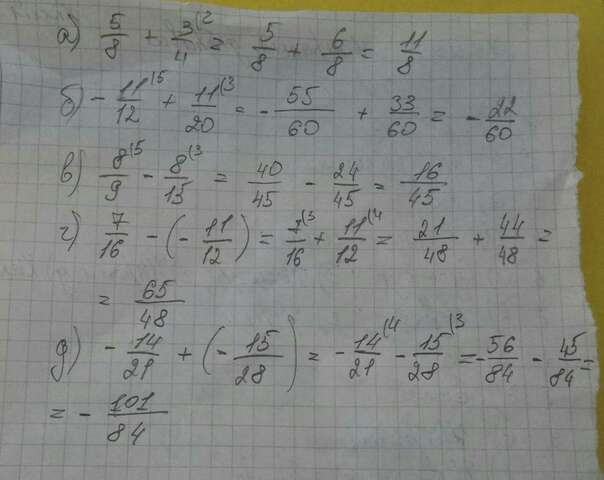 а) 5/8 + 3/4(2 = 5/8 + 6/8 = 11/8
б) - 11/12(5 + 11/20(3 = - 55/60 + 33/60 = - 22/60
в) 8/9(5 - 8/15(3 = 40/45 - 24/45 = 16/45
г) 7/16 - (- 11/12) = 7/16(3 + 11/12(4 = 21/48 + 44/48 =
= 65/48
д) - 14/21 + (- 15/28) = - 14/21(4 - 15/28(3 = - 56/84 - 45/84 =
= - 101/84